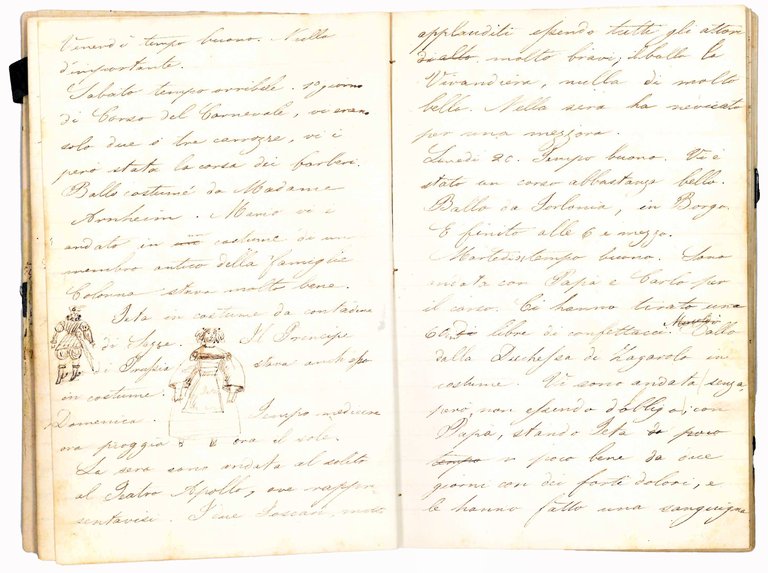 Venerdì tempo buono. Nulla
d'importante.
Sabato tempo orribile. 1o giorno
di Corso del Carnevale, vi eran
solo due o tre carrozze, vi è
però stata la corsa dei barberi.
Ballo costumé da Madame
Arnheim. Mario vi è
andato in costume di un
membro antico della famiglia
Colonna stava molto bene.
Teta in costume da contadina
di Il Principe
di Prussia stava anch'esso
in costume.
Domenica. Tempo mediocre
ora pioggia ora il sole.
La sera sono andata al solito
al Teatro Apollo, ove rappre
sentavasi. I due Foscari, molto
applauditi essendo tutti gli attori
molto bravi, il ballo la
Vivandiera, nulla di molto
bello. Nella sera ha nevicato
per una mezzora.
Lunedì 20. Tempo buono. Vi è
stato un corso abbastanza bello.
Ballo da Torlonia, in Borgo.
È finito alle 6 e mezzo.
Martedì tempo buono. Sono
andata con Papà e Carlo per
il corso. Ci hanno tirato una
libre di confettacci. Ballo
dalla Duchessa di Zagarolo in
costume. Vi sono andata senza,
però, non essendo d'obbligo, con
Papà, stando Teta poco
tempo n poco bene da due
giorni con dei forti dolori, e
le hanno fatto una sanguigna